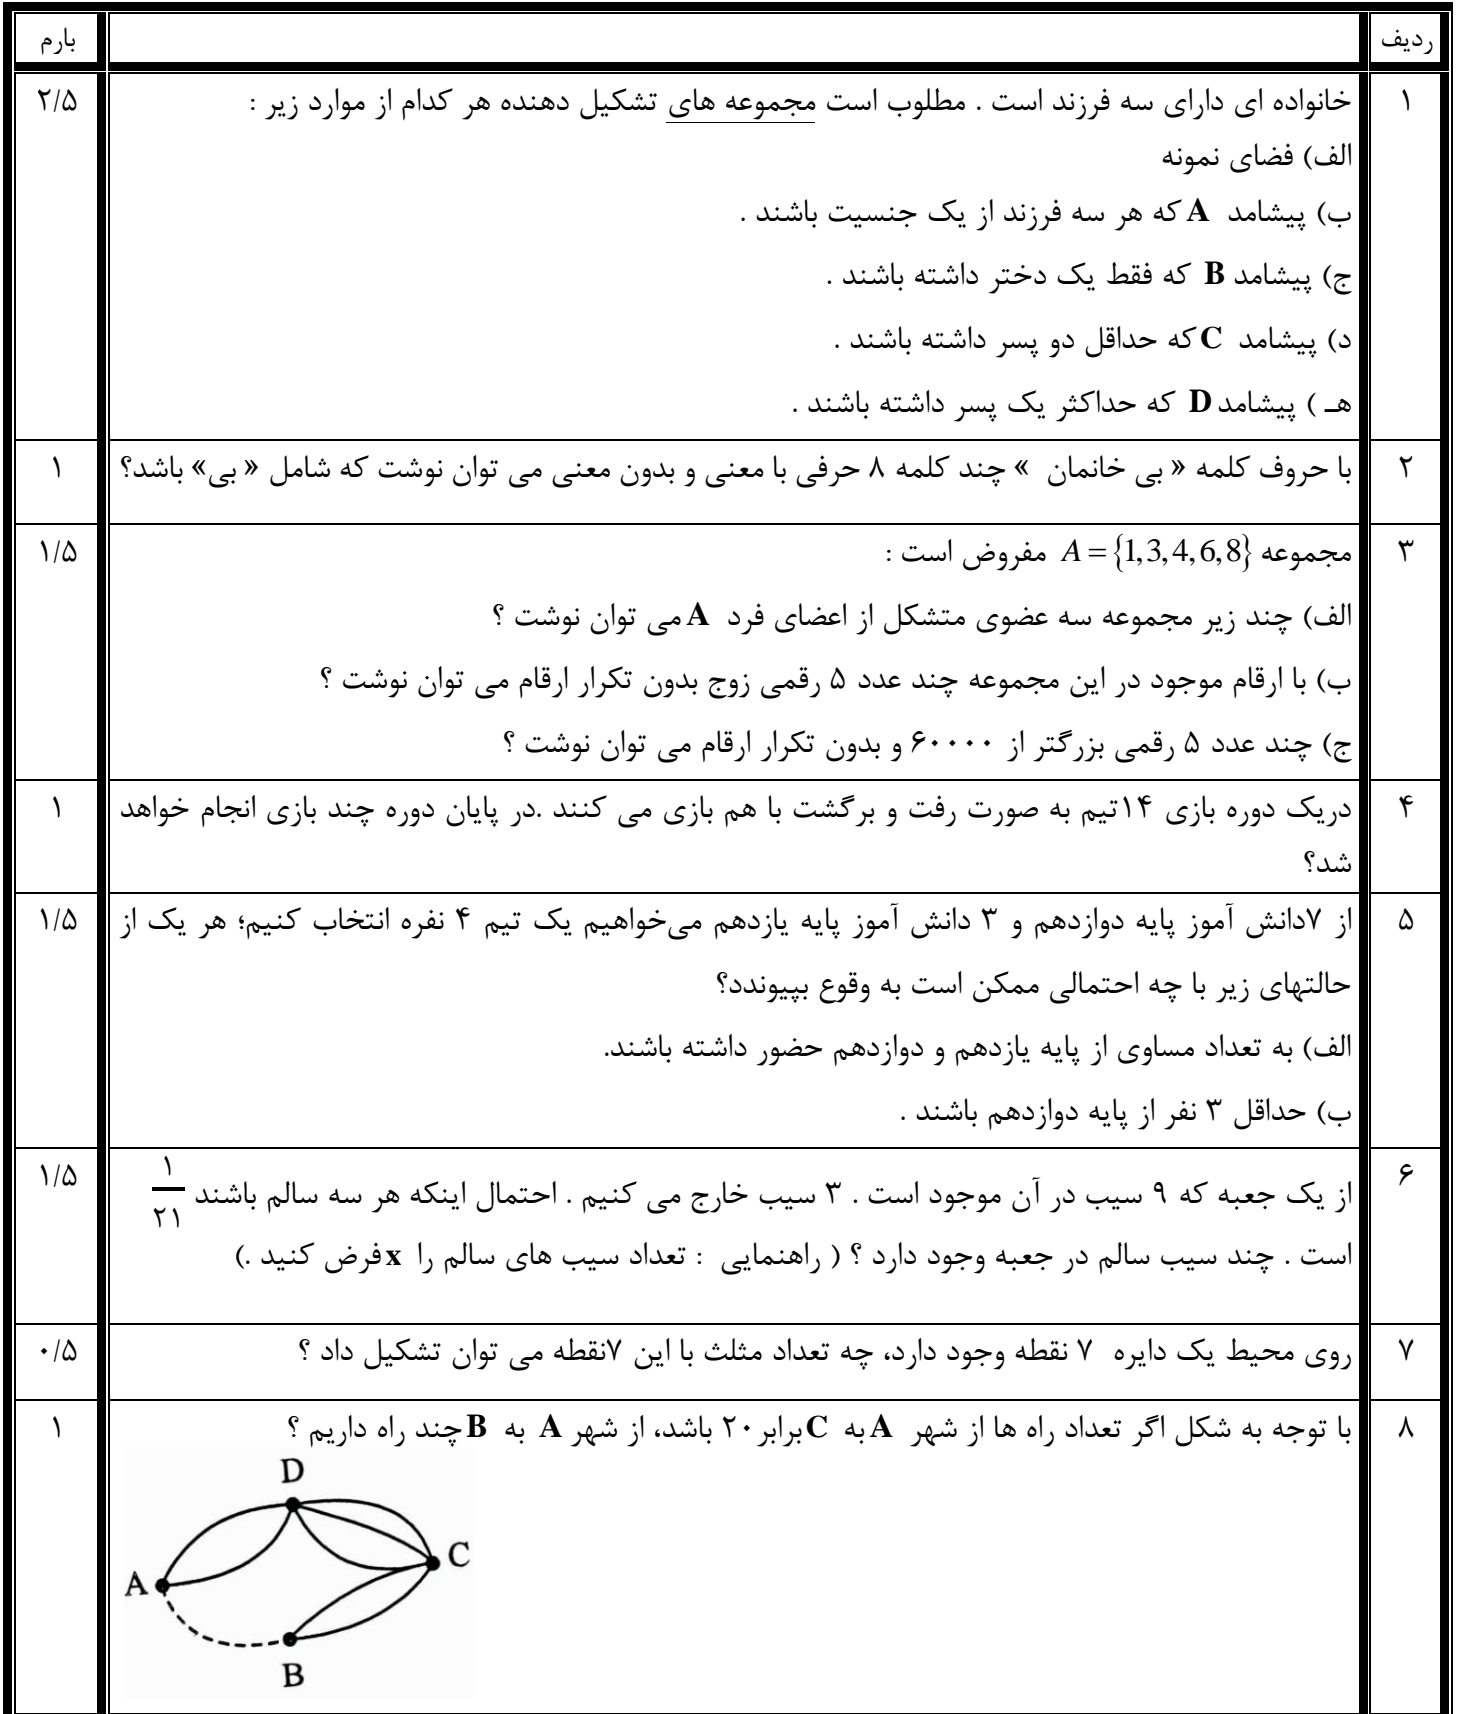 ردیف بارم
۱ خانواده ای دارای سه فرزند است . مطلوب است مجموعه های تشکیل دهنده هر کدام از موارد زیر : ۲/۵
الف) فضای نمونه
ب) پیشامد A که هر سه فرزند از یک جنسیت باشند .
ج) پیشامد B که فقط یک دختر داشته باشند .
د) پیشامد C که حداقل دو پسر داشته باشند .
هـ ) پیشامد D که حداکثر یک پسر داشته باشند .
۲ با حروف کلمه « بی خانمان » چند کلمه ۸ حرفی با معنی و بدون معنی می توان نوشت که شامل « بی» باشد؟ ۱
۳ مجموعه A = {1,3,4,6,8} مفروض است : ۱/۵
الف) چند زیر مجموعه سه عضوی متشکل از اعضای فرد A می توان نوشت ؟
ب) با ارقام موجود در این مجموعه چند عدد ۵ رقمی زوج بدون تکرار ارقام می توان نوشت ؟
ج) چند عدد ۵ رقمی بزرگتر از ۶۰۰۰۰ و بدون تکرار ارقام می توان نوشت ؟
۴ دریک دوره بازی ۱۴تیم به صورت رفت و برگشت با هم بازی می کنند .در پایان دوره چند بازی انجام خواهد ۱
شد؟
۵ از ۷دانش آموز پایه دوازدهم و ۳ دانش آموز پایه یازدهم می‌خواهیم یک تیم ۴ نفره انتخاب کنیم؛ هر یک از ۱/۵
حالتهای زیر با چه احتمالی ممکن است به وقوع بپیوندد؟
الف) به تعداد مساوی از پایه یازدهم و دوازدهم حضور داشته باشند.
ب) حداقل ۳ نفر از پایه دوازدهم باشند .
۶ از یک جعبه که ۹ سیب در آن موجود است . ۳ سیب خارج می کنیم . احتمال اینکه هر سه سالم باشند ۱/۲۱ ۱/۵
است . چند سیب سالم در جعبه وجود دارد ؟ ( راهنمایی : تعداد سیب های سالم را x فرض کنید .)
۷ روی محیط یک دایره ۷ نقطه وجود دارد، چه تعداد مثلث با این ۷نقطه می توان تشکیل داد ؟ ۰/۵
۸ با توجه به شکل اگر تعداد راه ها از شهر A به C برابر ۲۰ باشد، از شهر A به B چند راه داریم ؟ ۱
D
C
A
B